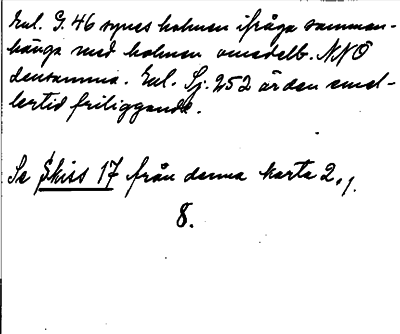 Enl. G. 46 synes holmen ifråga samman-
hänga med holmen omedelb. NNÖ
densamma. Enl. Sj. 252 är den emel-
lertid friliggande.
Se Skiss 17 från denna karta 2.1.
8.